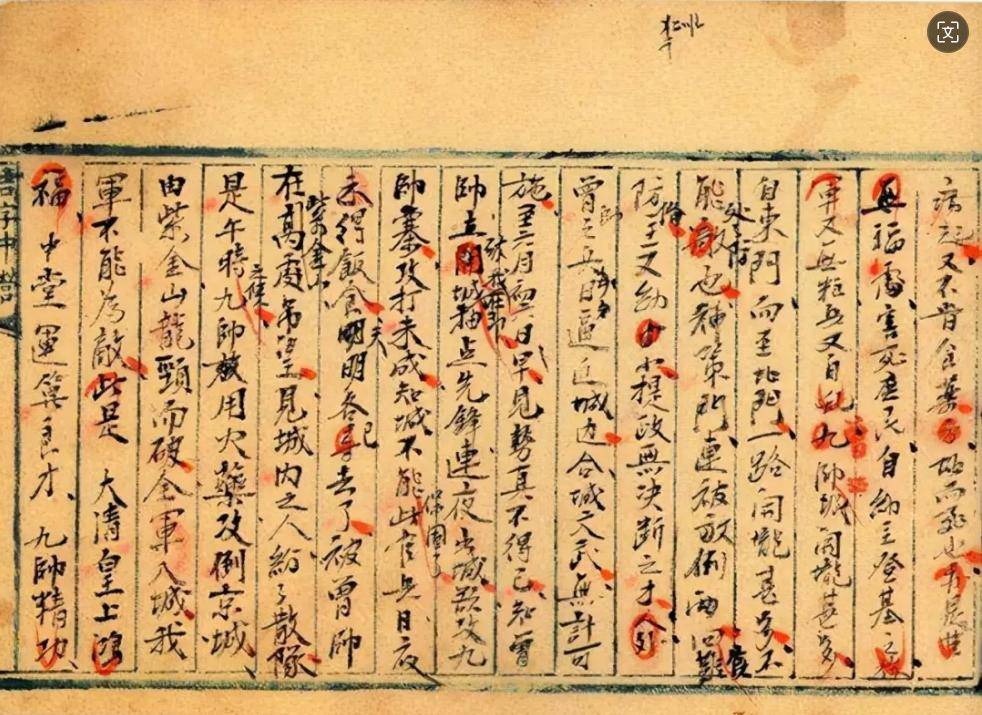 病起又不肯食藥方故而死也
福害死庶民自幼主登基之後
軍又無粒兵又自乱九帥城開壠甚多
自東門而至北門一路開壠甚多不
能敵也神策門連被攻倒兩回難
防守又幼小提政無決斷之才
曾帥之兵日逼近城边合城文武無計可
施至六月初六日早見勢真不得已知曾
帥立開城抽点先鋒連夜出城欲攻九
帥寨攻打未成知城不能保固了此官兵日夜
未得飯食明明各去了被曾帥
在紫金山高處吊望見城內之人紛々散隊
是午時九帥發用火藥攻倒京城
由紫金山龍頸而破全軍入城我
軍不能為敵此是 大清皇上鴻
福 中堂運籌良才 九帥精功
吉字中營